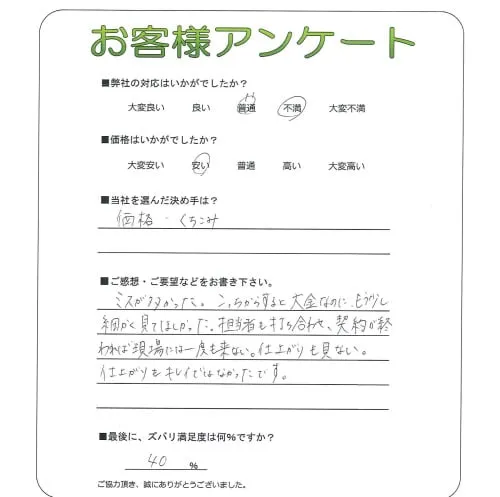 お客様アンケート
■弊社の対応はいかがでしたか？
大変良い 良い 普通 不満 大変不満
■価格はいかがでしたか？
大変安い 安い 普通 高い 大変高い
■当社を選んだ決め手は？
価格・くちこみ
■ご感想・ご要望などをお書き下さい。
ミスが多かった。こっちからすると大金なのに、もう少し
細かく見てほしかった。担当者も打ち合わせ、契約が終
われば現場には一度も来ない。仕上がりも見ない。
仕上がりもキレイではなかったです。
■最後に、ズバリ満足度は何％ですか？
40 ％
ご協力頂き、誠にありがとうございました。